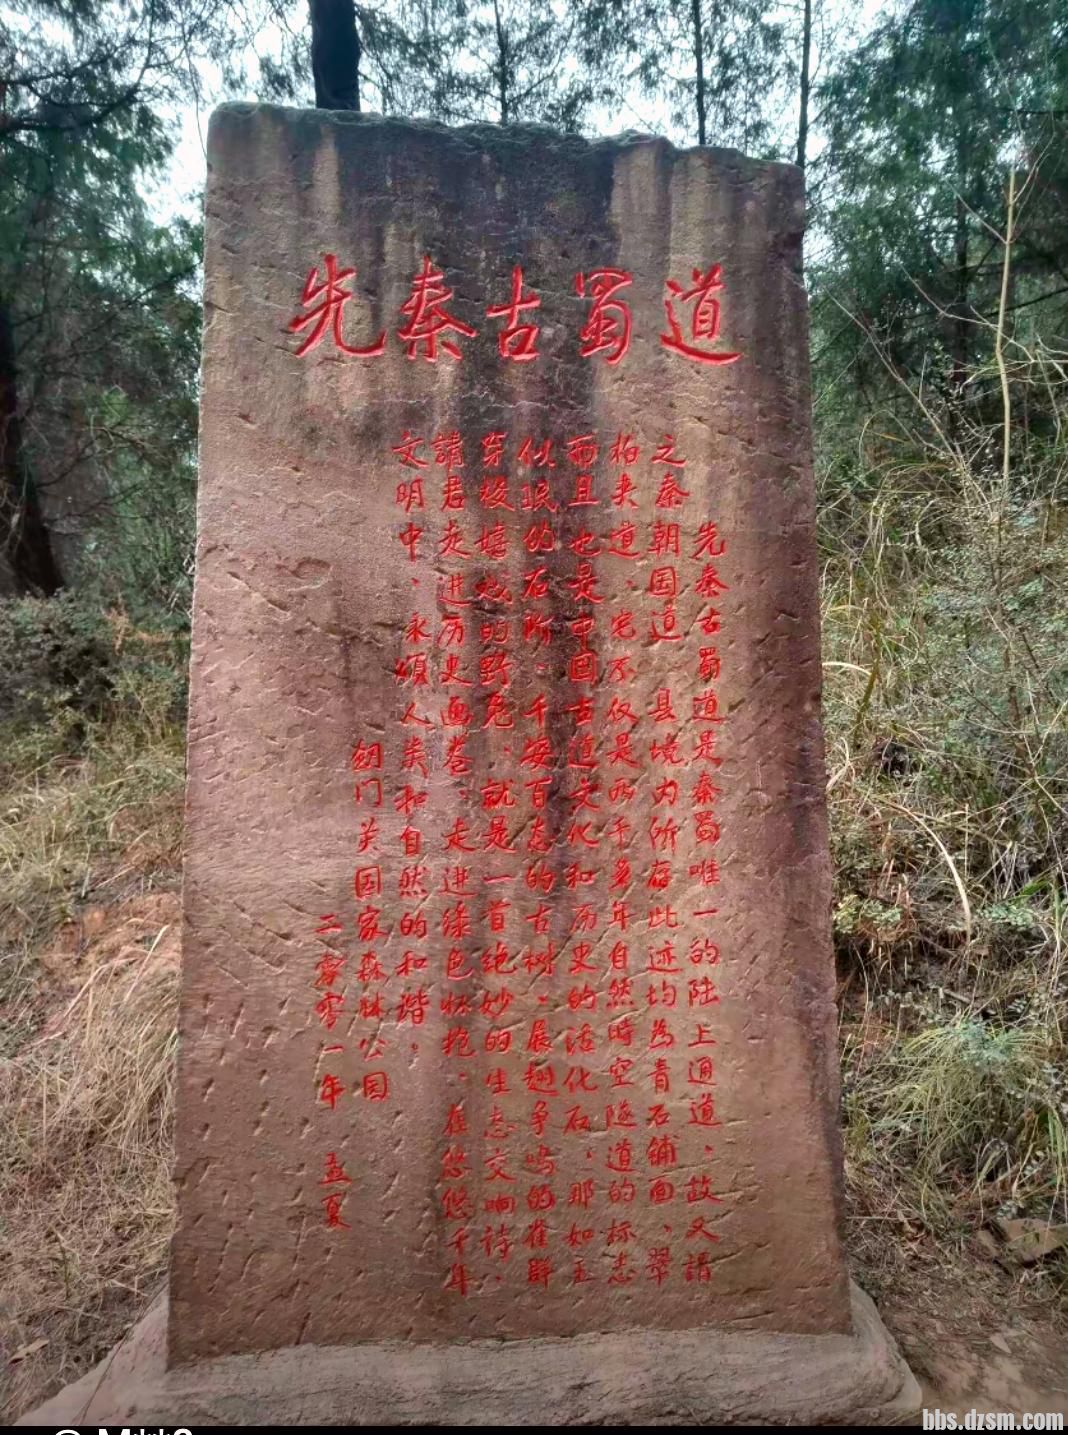 先秦古蜀道
先秦古蜀道是秦蜀唯一的陆上通道、故又謂
之秦朝国道、县境内所存此迹均為青石舖面、翠
柏夹道、它不仅是两千多年自然時空隧道的标志
而且也是中国古道文化和历史的活化石、那如玉
似珉的石阶、千姿百态的古树、展翅争鸣的雀群
穿梭嬉戏的野兔、就是一首绝妙的生态交响诗、
請君走进历史画卷、走进绿色怀抱、在悠悠千年
文明中、永颂人类和自然的和谐。
剑门关国家森林公园
二零零一年 孟夏
bbs.dzsm.com